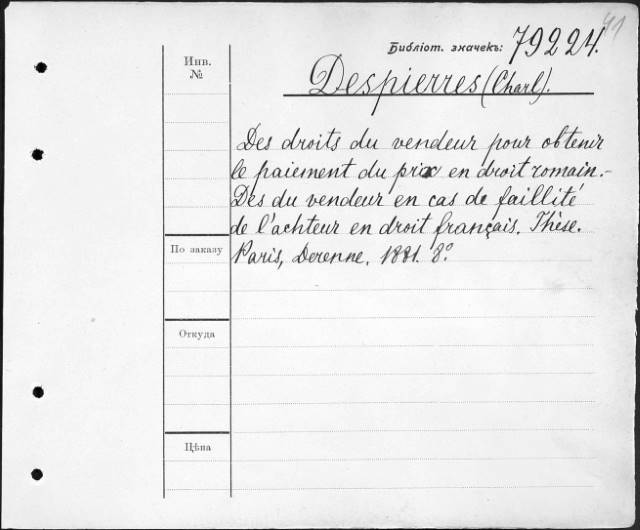 41
Библіот. значекъ: 79224.
Инв.
№
Despierres (Charl).
Des droits du vendeur pour obtenir
le paiement du prix en droit romain.-
Des du vendeur en cas de faillité
de l'achteur en droit français. Thèse.
По заказу
Paris, Derenne. 1881. 8°.
Откуда
Цѣна